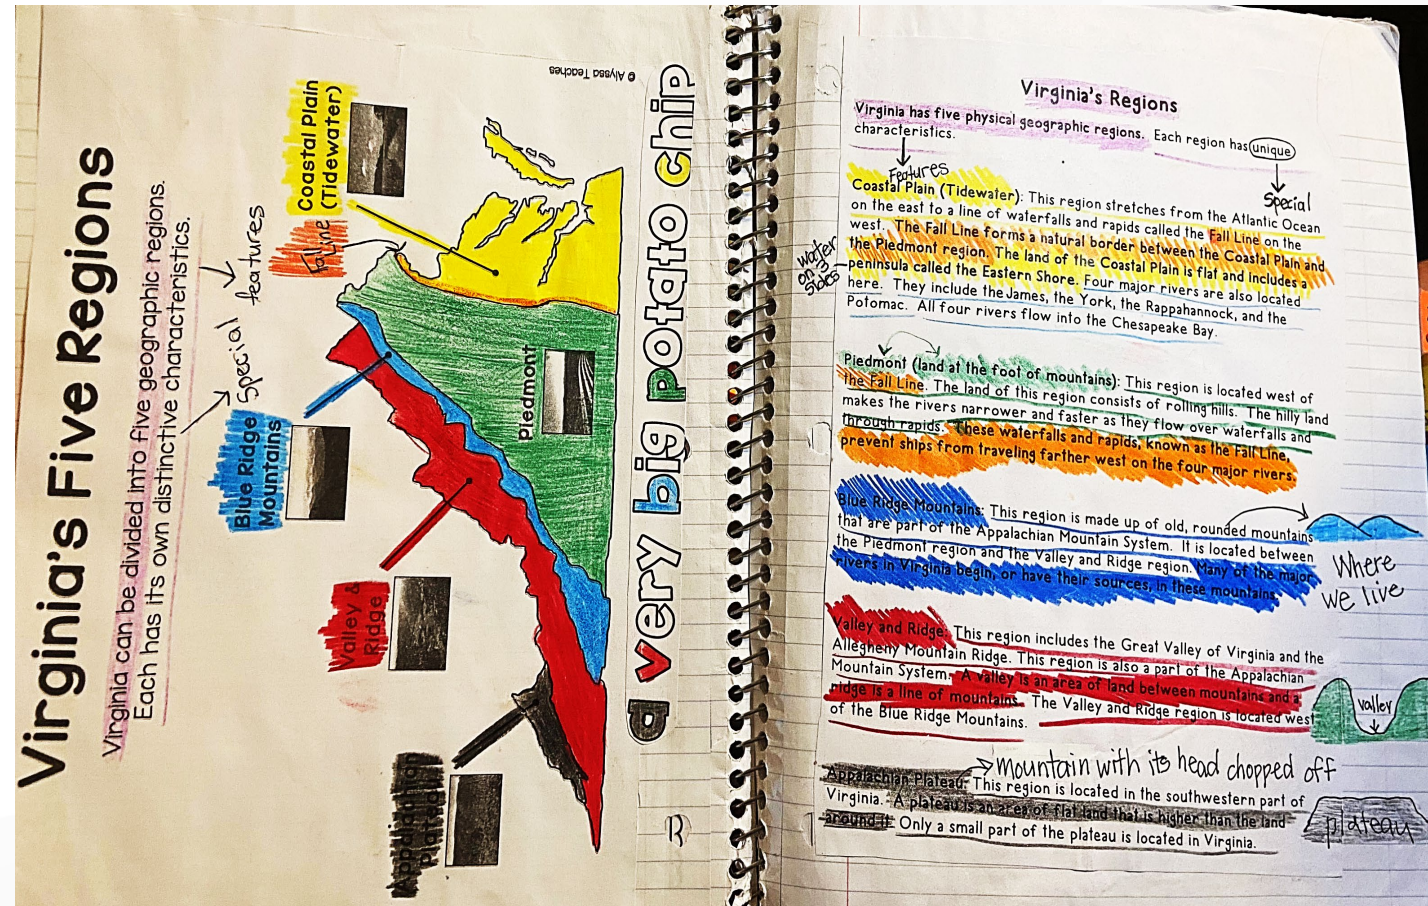 Virginia's Five Regions
Virginia can be divided into five geographic regions.
Each has its own distinctive characteristics.
Special features
Coastal Plain
(Tidewater)
Fall Line
Piedmont
Blue Ridge
Mountains
Valley &
Ridge
Appalachian
Plateau
a very big potato chip
© Alyssa Teaches
Virginia's Regions
Virginia has five physical geographic regions. Each region has unique
characteristics.
Features
Special
Coastal Plain (Tidewater): This region stretches from the Atlantic Ocean
on the east to a line of waterfalls and rapids called the Fall Line on the
west. The Fall Line forms a natural border between the Coastal Plain and
the Piedmont region. The land of the Coastal Plain is flat and includes a
peninsula called the Eastern Shore. Four major rivers are also located
here. They include the James, the York, the Rappahannock, and the
Potomac. All four rivers flow into the Chesapeake Bay.
water
on 3
sides
Piedmont (land at the foot of mountains): This region is located west of
the Fall Line. The land of this region consists of rolling hills. The hilly land
makes the rivers narrower and faster as they flow over waterfalls and
through rapids. These waterfalls and rapids, known as the Fall Line,
prevent ships from traveling farther west on the four major rivers.
Blue Ridge Mountains: This region is made up of old, rounded mountains
that are part of the Appalachian Mountain System. It is located between
the Piedmont region and the Valley and Ridge region. Many of the major
rivers in Virginia begin, or have their sources, in these mountains.
Where
we live
Valley and Ridge: This region includes the Great Valley of Virginia and the
Allegheny Mountain Ridge. This region is also a part of the Appalachian
Mountain System. A valley is an area of land between mountains and a
ridge is a line of mountains. The Valley and Ridge region is located west
of the Blue Ridge Mountains.
valley
mountain with its head chopped off
Appalachian Plateau: This region is located in the southwestern part of
Virginia. A plateau is an area of flat land that is higher than the land
around it. Only a small part of the plateau is located in Virginia.
plateau